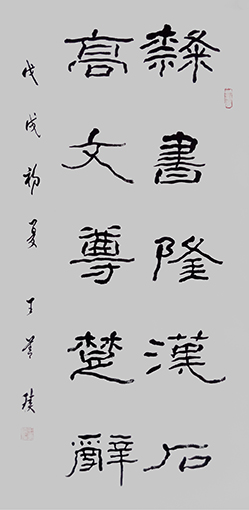 隸書隆漢石
高文尊楚辭
戊戌初夏丁